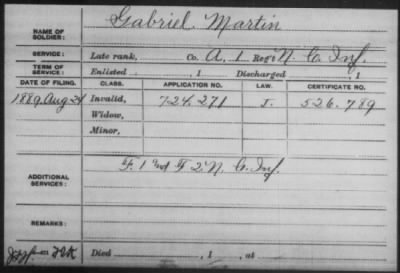 NAME OF SOLDIER: Gabriel Martin
SERVICE: Late rank, Co. A. 1 Reg't N. C. Inf.
TERM OF SERVICE: Enlisted , 1 Discharged , 1
DATE OF FILING. CLASS. APPLICATION NO. LAW. CERTIFICATE NO.
1889, Aug 24 Invalid, 724.271 J. 526.789
Widow,
Minor,
ADDITIONAL SERVICES: F. 1 and F 2. N. C. Inf.
REMARKS:
Died , 1 , at